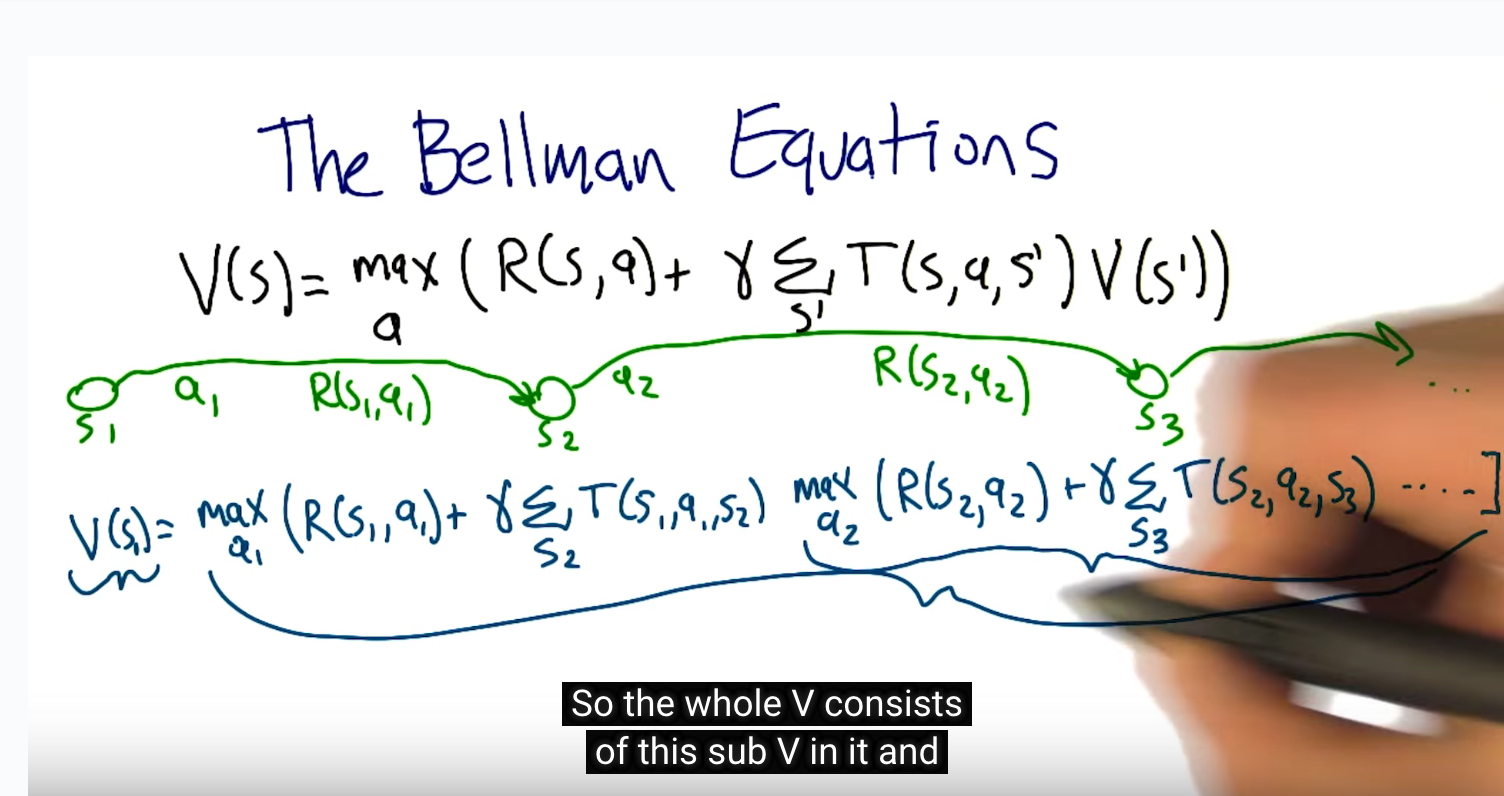 The Bellman Equations
V(s)= max (R(s,a)+ γ Σ T(s,a,s')V(s'))
a s'
a1 R(s1,a1) a2 R(s2,a2) ...
s1 s2 s3
V(s1)= max (R(s1,a1)+ γ Σ T(s1,a1,s2) max (R(s2,a2)+γ Σ T(s2,a2,s3) .....]
a1 s2 a2 s3
So the whole V consists
of this sub V in it and